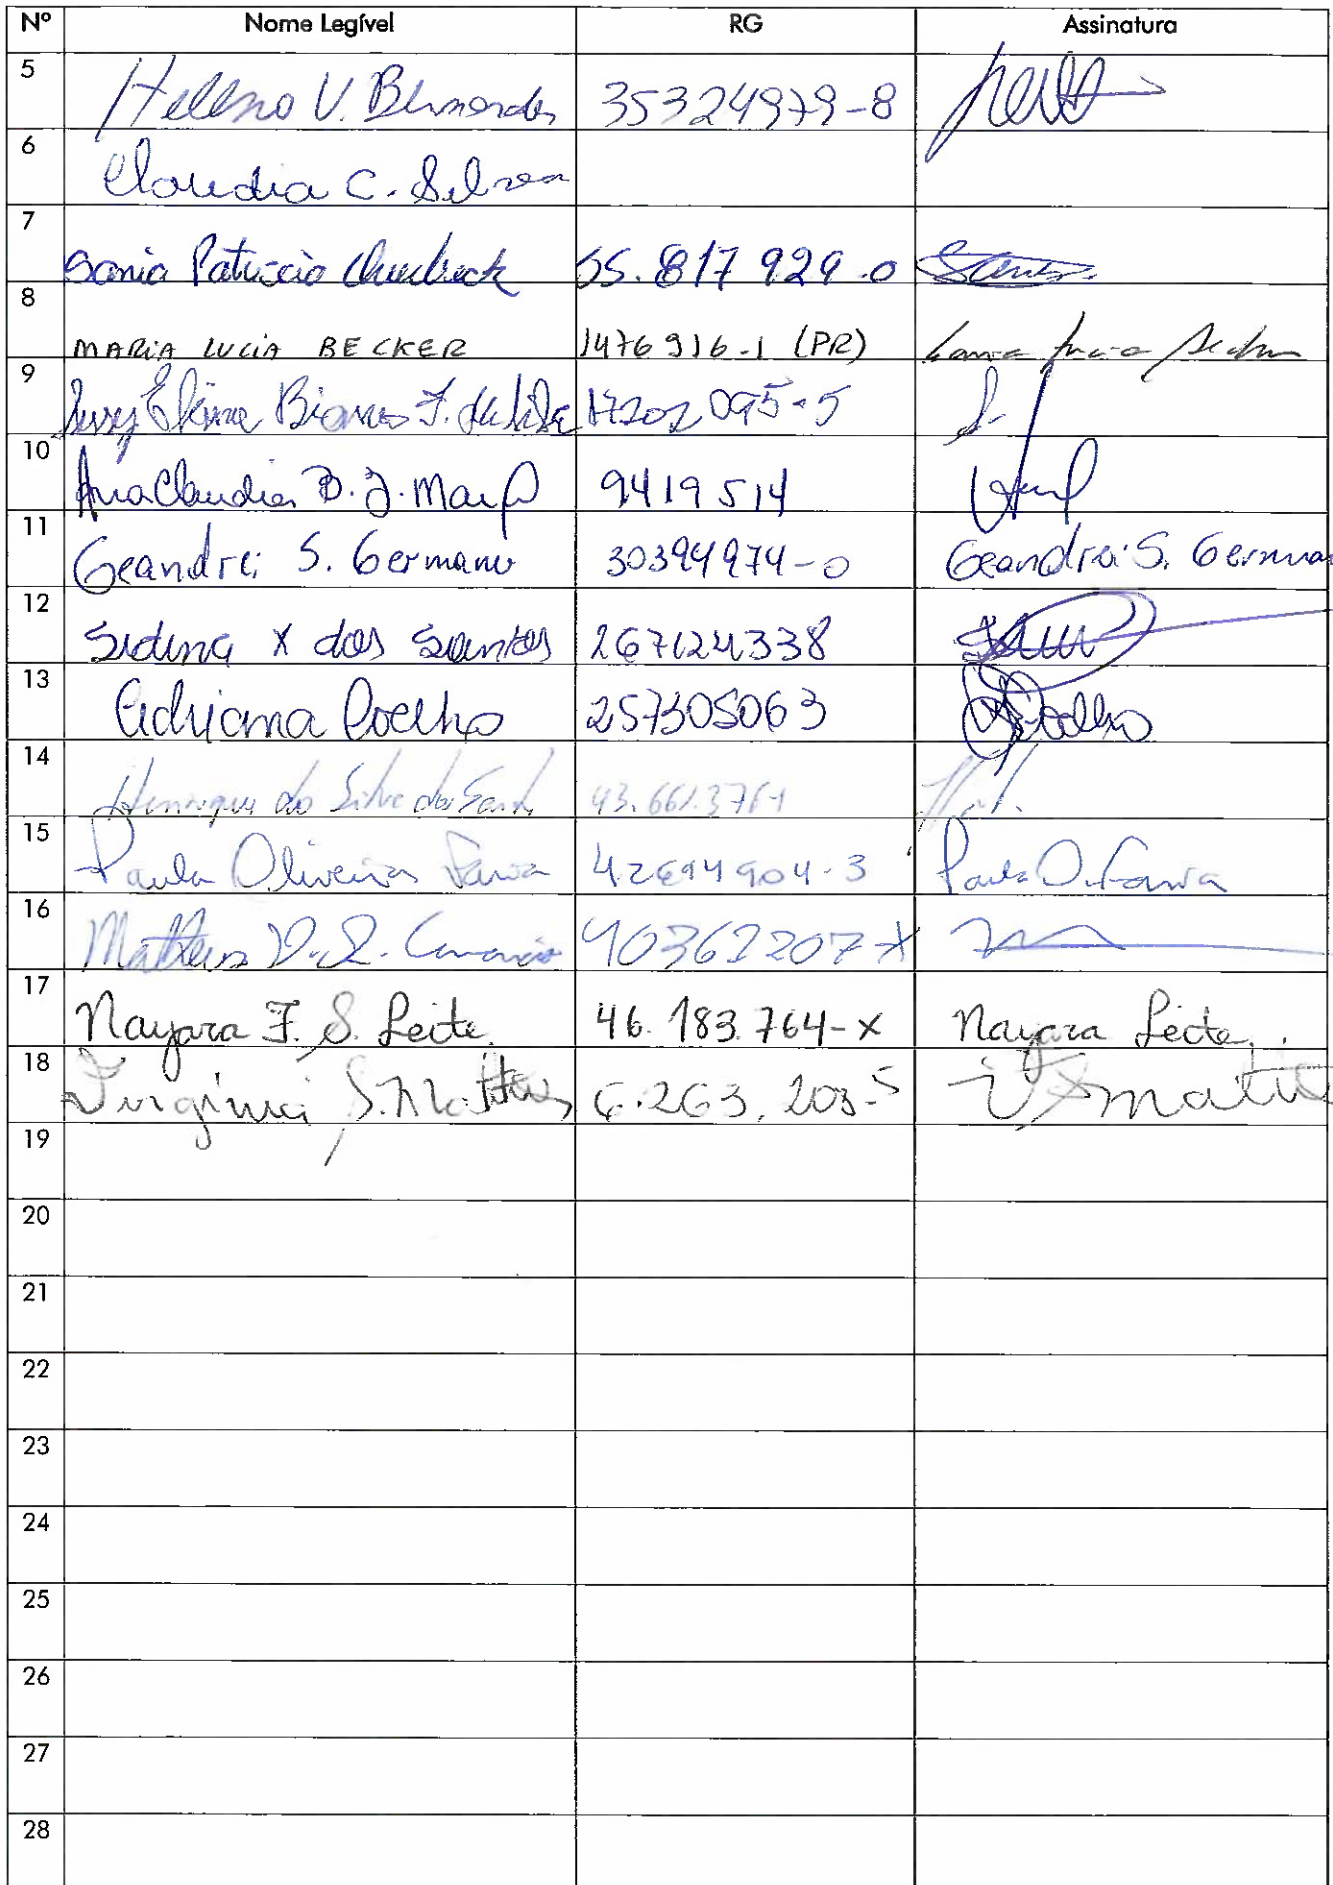 Nº Nome Legível RG Assinatura
5 Helleno V. Bernardes 35324979-8
6 Claudia C. Silva
7 Sonia Patricio 55.817 929-0
8 MARIA LUCIA BECKER 1476916-1 (PR)
9 17202095-5
10 Ana Claudia B. J. 9419514
11 Geandrei S. Germano 30394974-0 Geandrei S. German
12 x dos Santos 267124338
13 Adriana Coelho 257305063 Coelho
14 Henrique da Silva dos Sant 43.661.376-1
15 Paula Oliveira Faria 42694904-3 Paula O. Faria
16 Matheus 40361207-X
17 Nayara F. S. Leite 46.183.764-X Nayara Leite.
18 Virginia S. Mattos 6.263.203-5
19
20
21
22
23
24
25
26
27
28